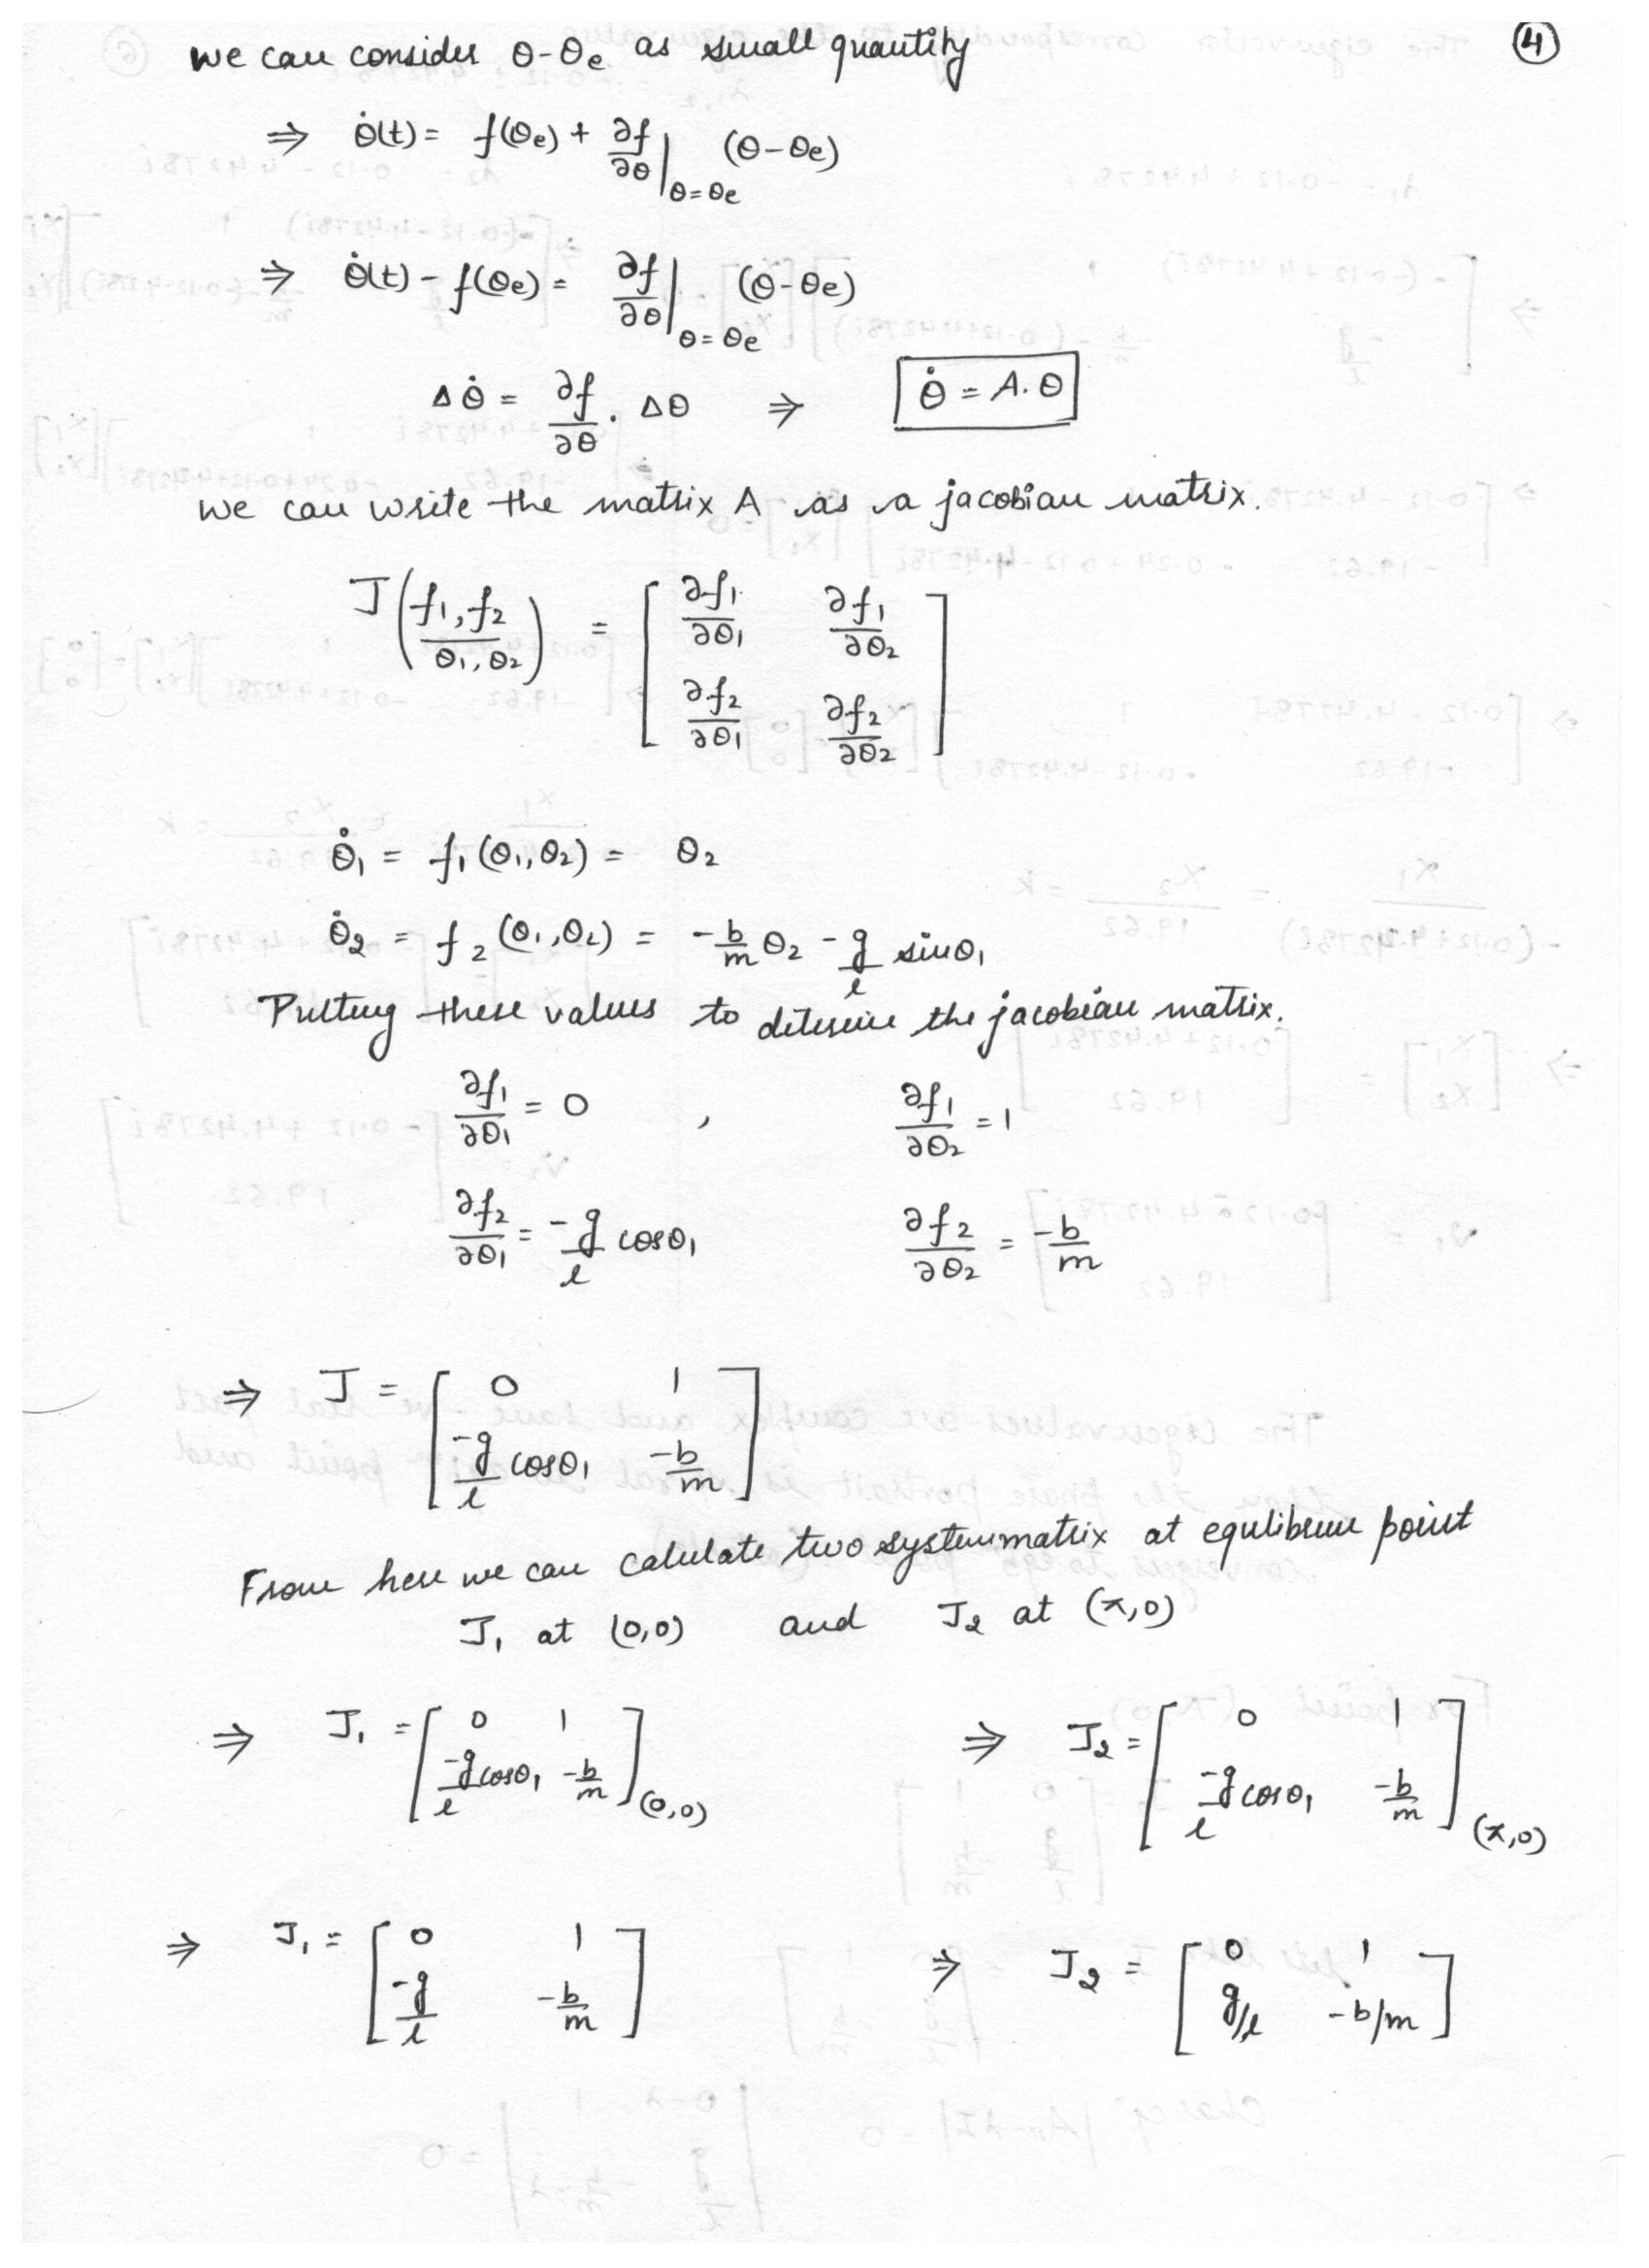 we can consider θ-θe as small quantity
④
⇒ θ̇(t) = f(θe) + ∂f/∂θ |θ=θe (θ-θe)
⇒ θ̇(t) - f(θe) = ∂f/∂θ |θ=θe (θ-θe)
Δθ̇ = ∂f/∂θ . Δθ ⇒ θ̇ = A.θ
we can write the matrix A as a jacobian matrix.
J (f1, f2 / θ1, θ2) = [ ∂f1/∂θ1 ∂f1/∂θ2
∂f2/∂θ1 ∂f2/∂θ2 ]
θ̇1 = f1 (θ1, θ2) = θ2
θ̇2 = f2 (θ1, θ2) = -b/m θ2 - g/l sinθ1
Putting these values to ditermine the jacobian matrix.
∂f1/∂θ1 = 0 , ∂f1/∂θ2 = 1
∂f2/∂θ1 = -g/l cosθ1 ∂f2/∂θ2 = -b/m
⇒ J = [ 0 1
-g/l cosθ1 -b/m ]
From here we can calulate two system matrix at equlibrium point
J1 at (0,0) and J2 at (π,0)
⇒ J1 = [ 0 1 ⇒ J2 = [ 0 1
-g/l cosθ1 -b/m ](0,0) -g/l cosθ1 -b/m ](π,0)
⇒ J1 = [ 0 1 ⇒ J2 = [ 0 1
-g/l -b/m ] g/l -b/m ]